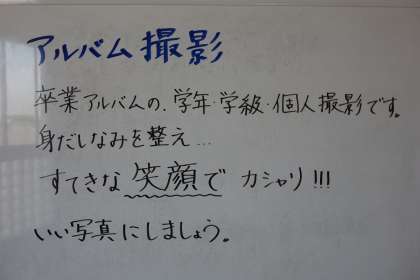 アルバム撮影
卒業アルバムの、学年・学級・個人撮影です。
身だしなみを整え...
すてきな笑顔で カシャリ!!!
いい写真にしましょう。